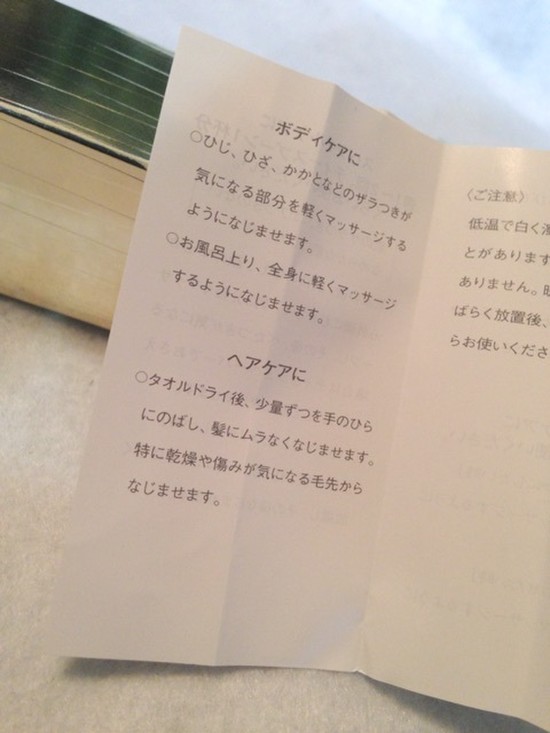 ボディケアに
○ひじ、ひざ、かかとなどのザラつきが
気になる部分を軽くマッサージする
ようになじませます。
○お風呂上り、全身に軽くマッサージ
するようになじませます。
ヘアケアに
○タオルドライ後、少量ずつを手のひら
にのばし、髪にムラなくなじませます。
特に乾燥や傷みが気になる毛先から
なじませます。
〈ご注意〉
低温で白く
とがあります
ありません。
ばらく放置後、
らお使いくださ